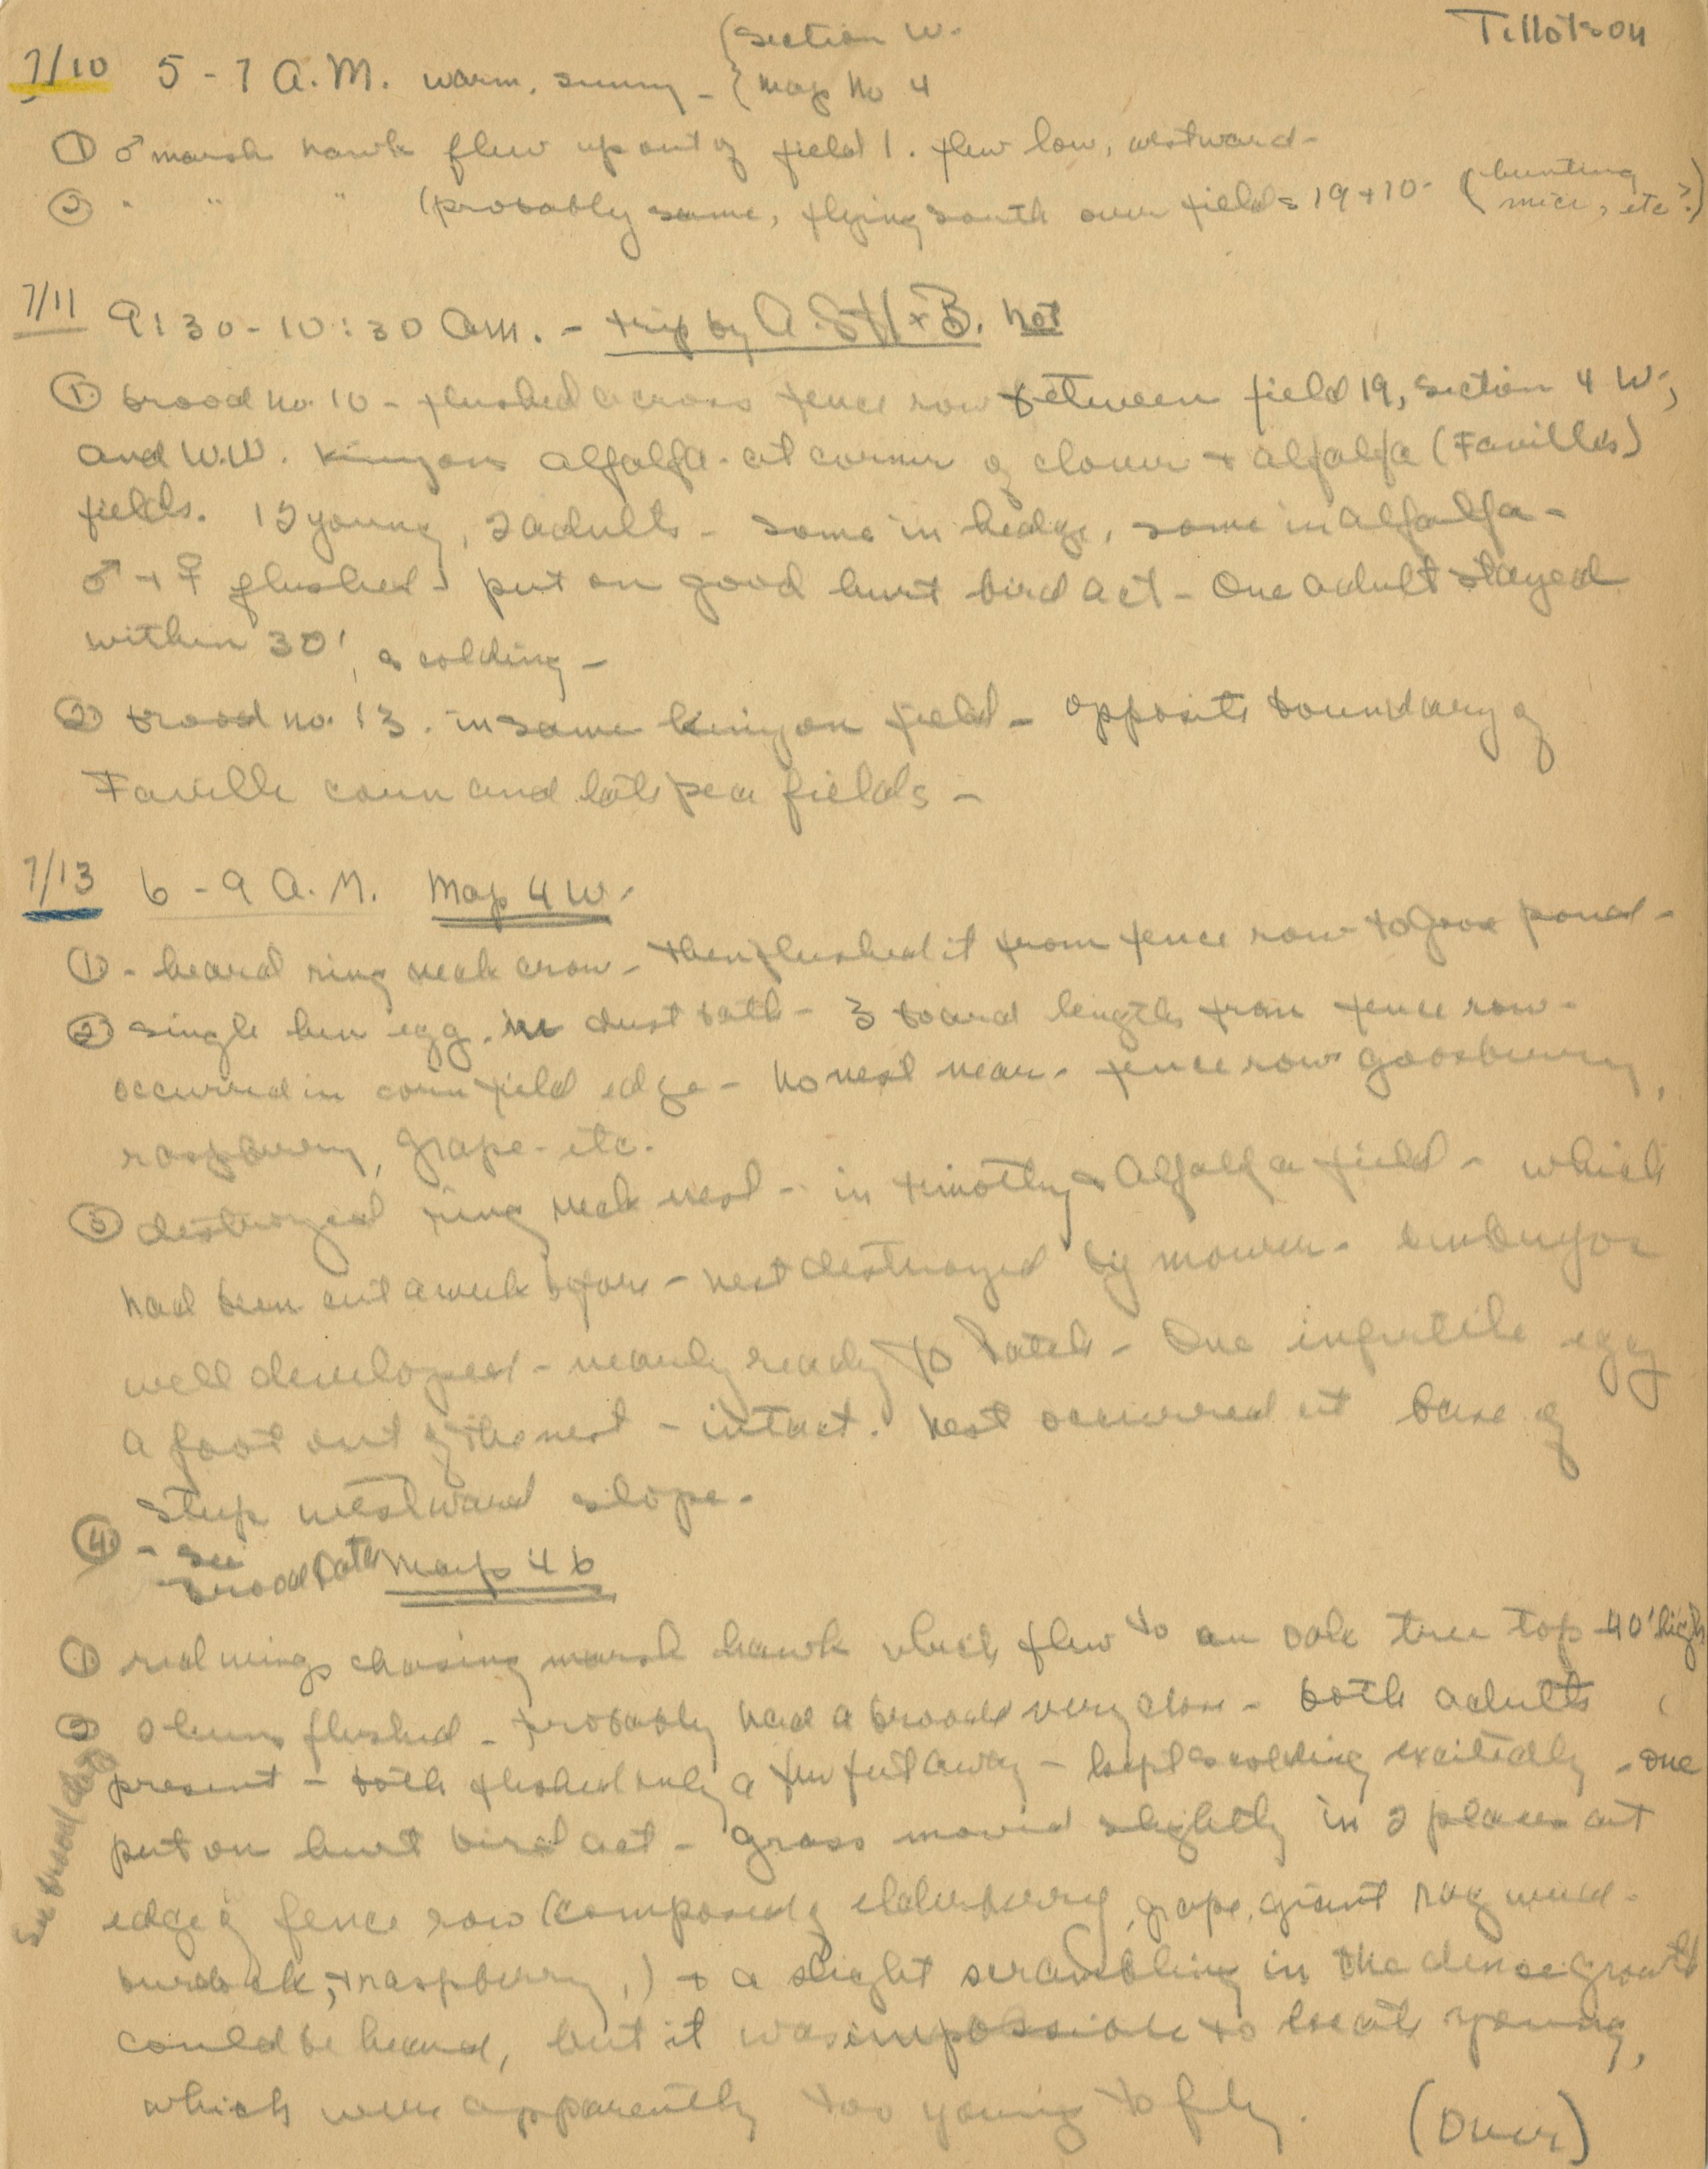 Tillotson
7/10 5-7 A.M. warm, sunny - { Section W.
{ Map No 4
① ♂ marsh hawk flew up out of field 1. flew low, westward -
② " " " (probably same, flying south over fields 19 + 10 - (hunting mice, etc?)
7/11 9:30-10:30 A.M. - trip by A.S.H + B. hot
① brood no. 10 - flushed across fence row between field 19, section 4 W,
and W.W. Kinyon alfalfa - at corner of clover + alfalfa (Favilles)
fields. 12 young, 2 adults - some in hedge, some in alfalfa -
♂ + ♀ flushed, put on good hurt bird act - One adult stayed
within 30', scolding -
② brood no. 13. in same kinyon field - opposite boundary of
Faville corn and late pea fields -
7/13 6-9 A.M. Map 4 W.
① - heard ring neck crow - then flushed it from fence row to pond -
② single hen egg in dust bath - 3 board lengths from fence row -
occurred in corn field edge - no nest near - fence row gooseberry,
raspberry, grape - etc.
③ destroyed ring neck nest - in timothy & Alfalfa field - which
had been cut a week before - nest destroyed by mower - embryos
well developed - nearly ready to hatch - One infertile egg
a foot out of the nest - intact. Nest occurred at base of
steep westward slope.
④ - See
brood data Map 4 b
① red wings chasing marsh hawk which flew to an oak tree top 40' high
② 2 huns flushed - probably had a brood very close - both adults
present - both flushed only a few feet away - kept scolding excitedly - one
put on hurt bird act - grass moved slightly in 2 places at
edge of fence row (composed of elderberry, grape, giant rag weed -
burdock, + raspberry,) + a slight scrambling in the dense growth
could be heard, but it was impossible to locate young,
which were apparently too young to fly.
(Over)
See brood data